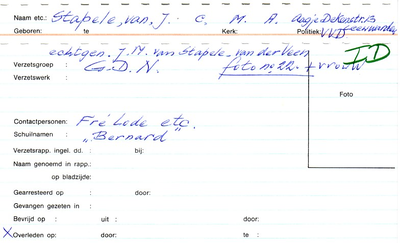 Naam etc.: Stapele, van, J. C. M. A. Aagje Dekenstr. 13
Geboren: te Kerk: Politiek: VVD Leeuwarden
echtgen. J.M. van Stapele-van der Veen I D
Verzetsgroep : G.D.N. foto no. 22. + vrouw
Verzetswerk :
Foto
Contactpersonen: Fré Lede etc.
Schuilnamen : "Bernard"
Verzetsrapp. ingel. dd. : bij:
Naam genoemd in rapp.:
op bladzijde:
Gearresteerd op : door:
Gevangen gezeten in :
Bevrijd op : uit : door:
X Overleden op: door: te :